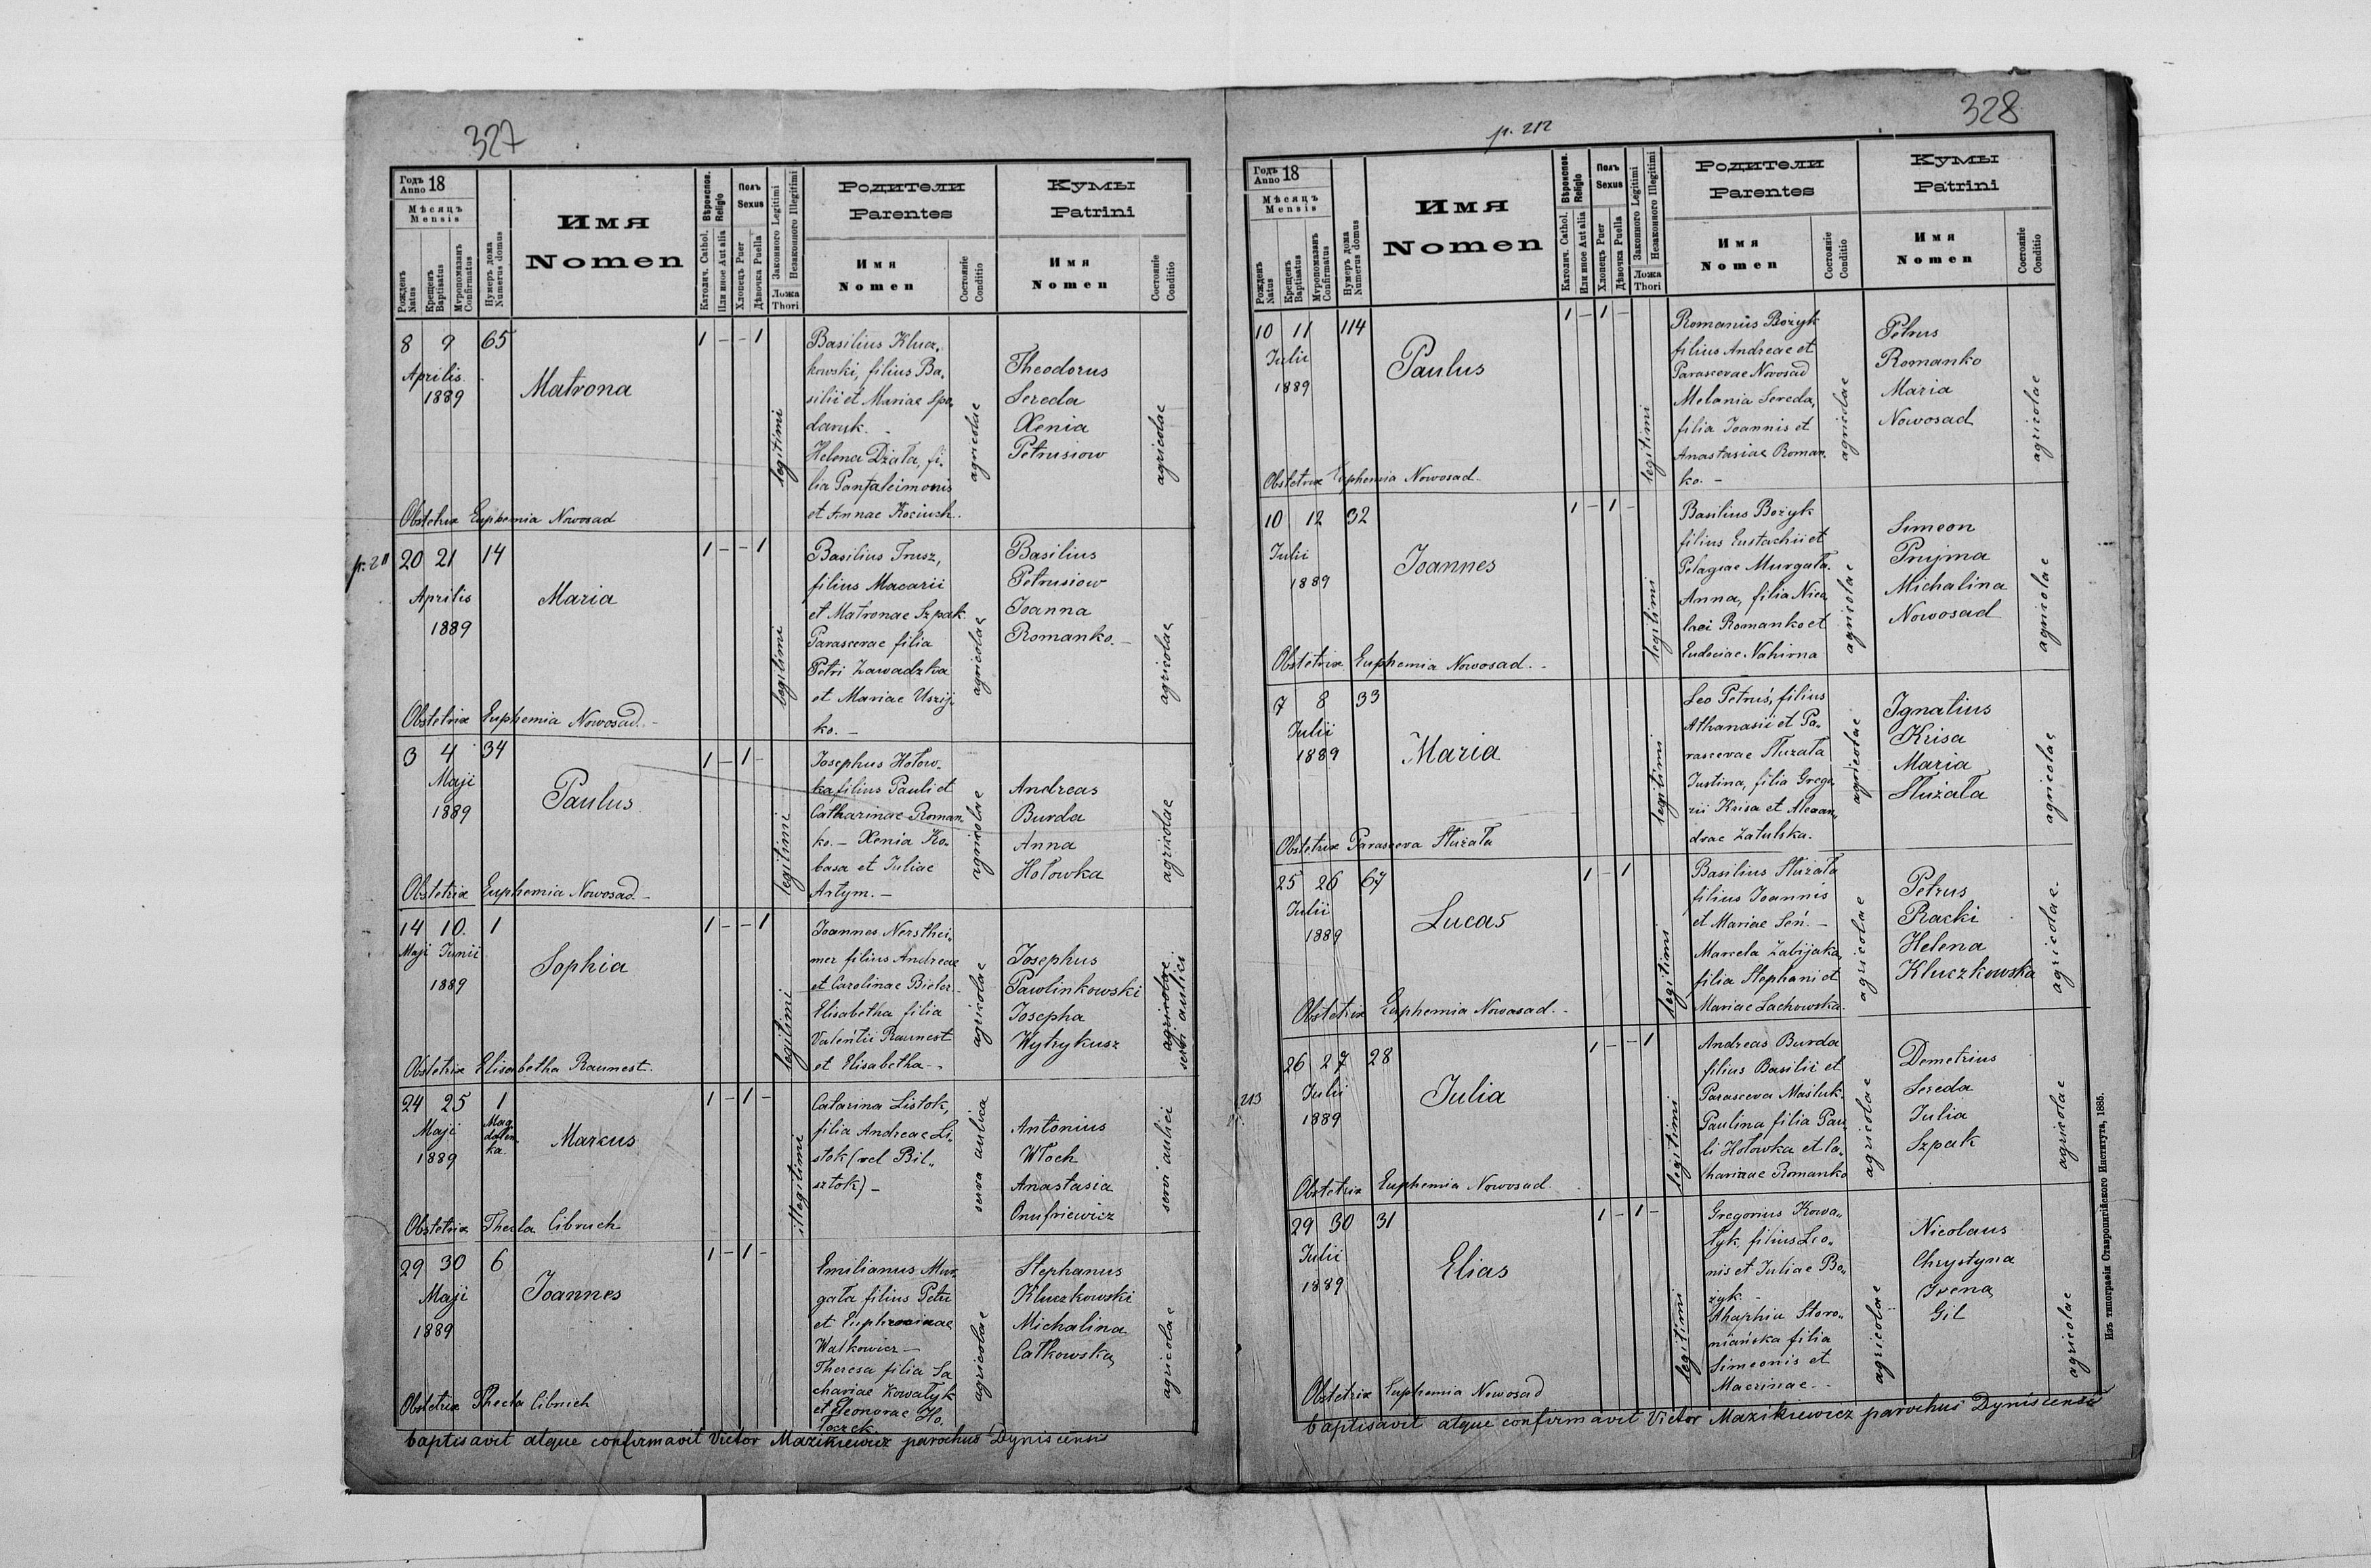 327
Годъ Anno 18
Мѣсяцъ Mensis
Рожденъ Natus
Крещенъ Baptisatus
Мѵропомазанъ Confirmatus
Нумеръ дома Numerus domus
Имя Nomen
Вѣроиспов. Religio
Католич. Cathol.
Или иное Aut alia
Полъ Sexus
Хлопецъ Puer
Дѣвочка Puella
Законного Legitimi
Незаконного Illegitimi
Ложа Thori
Родители Parentes
Имя Nomen
Состояніе Conditio
Кумы Patrini
Имя Nomen
Состояніе Conditio
8 9 65
Aprilis
1889
Matrona
1 - - 1
legitimi
Basilius Klucz„
kowski, filius Ba„
silii et Mariae Spo„
daruk. -
Helena Działa, fi„
lia Pantaleimonis
et Annae Kociuch.
agricolae
Theodorus
Sereda
Xenia
Petrusiow
agricolae
Obstetrix Euphemia Nowosad
p. 211
20 21 14
Aprilis
1889
Maria
1 - - 1
legitimi
Basilius Trusz,
filius Macarii
et Matronae Szpak.
Parascevae filia
Petri Zawadzka
et Mariae Uszij„
ko. -
agricolae
Basilius
Petrusiow
Joanna
Romanko. -
agricolae
Obstetrix Euphemia Nowosad. -
3 4 34
Maji
1889
Paulus
1 - 1 -
legitimi
Josephus Hołow„
ka filius Pauli et
Catharinae Roman„
ko. - Xenia Ko„
basa et Juliae
Artym. -
agricolae
Andreas
Burda
Anna
Hołowka
agricolae
Obstetrix Euphemia Nowosad. -
14 10 1
Maji Junii
1889
Sophia
1 - - 1
legitimi
Joannes Nersthei„
mer filius Andreae
et Carolinae Bieler. -
Elisabetha filia
Valentii Raunest
et Elisabetha -
agricolae
Josephus
Pawlinkowski
Josepha
Wytrykusz
agricolae
servi aulici
Obstetrix Elisabetha Raunest.
24 25 1
Maji
1889
Mag„
dalen„
ka.
Marcus
1 - 1 -
illegitimi
Catarina Listok,
filia Andreae Li„
stok (vel Bil„
sztok) -
serva aulica
Antonius
Włoch
Anastasia
Onufriewicz
servi aulici
Obstetrix Thecla Cibruch
29 30 6
Maji
1889
Joannes
1 - 1 -
Emilianus Mur„
gała filius Petri
et Euphrosinae
Walkowicz -
Theresa filia Za
chariae Kowałyk
et Eleonorae Ho„
łoczek.
agricolae
Stephanus
Kluczkowski
Michalina
Całkowska
agricolae
Obstetrix Thecla Cibruch
baptisavit atque confirmavit Victor Mazikiewicz parochus Dyniscensis
328
p. 212
Годъ Anno 18
Мѣсяцъ Mensis
Рожденъ Natus
Крещенъ Baptisatus
Мѵропомазанъ Confirmatus
Нумеръ дома Numerus domus
Имя Nomen
Вѣроиспов. Religio
Католич. Cathol.
Или иное Aut alia
Полъ Sexus
Хлопецъ Puer
Дѣвочка Puella
Законного Legitimi
Незаконного Illegitimi
Ложа Thori
Родители Parentes
Имя Nomen
Состояніе Conditio
Кумы Patrini
Имя Nomen
Состояніе Conditio
10 11 114
Julii
1889
Paulus
1 - 1 -
legitimi
Romanus Bożyk
filius Andreae et
Parascevae Novosad
Melania Sereda,
filia Joannis et
Anastasiae Roman„
ko. -
agricolae
Petrus
Romanko
Maria
Nowosad
agricolae
Obstetrix Euphemia Nowosad.
10 12 32
Julii
1889
Joannes
1 - 1 -
legitimi
Basilius Bożyk
filius Eustachii et
Pelagiae Murgała.
Anna, filia Nico„
laei Romanko et
Eudociae Nahirna
agricolae
Simeon
Pryjma
Michalina
Nowosad
agricolae
Obstetrix Euphemia Nowosad. -
7 8 33
Julii
1889
Maria
legitimi
Leo Petruś, filius
Athanasii et Pa„
rascevae Służała
Justina, filia Grego„
rii Krisa et Alexan„
drae Zatulska.
agricolae
Ignatius
Krisa
Maria
Służała
agricolae
Obstetrix Parasceva Służała
25 26 67
Julii
1889
Lucas
1 - 1
legitimi
Basilius Służała
filius Joannis
et Mariae Seń. -
Marcela Zabijaka,
filia Stephani et
Mariae Lachowska.
agricolae
Petrus
Racki
Helena
Kluczkowska
agricolae.
Obstetrix Euphemia Nowosad. -
213
26 27 28
Julii
1889
Julia
1 - - 1
legitimi
Andreas Burda
filius Basilii et
Parasceva Masluk.
Paulina filia Pau„
li Hołowka et Ca„
tharinae Romanko
agricolae
Demetrius
Sereda
Julia
Szpak
agricolae
Obstetrix Euphemia Nowosad.
29 30 31
Julii
1889
Elias
1 - 1 -
legitimi
Gregorius Kowa„
łyk, filius Leo„
nis et Juliae Bo„
żyk -
Ahaphia Storo„
niańska filia
Simeonis et
Macrinae. -
agricolae
Nicolaus
Chrystyna
Irena
Gil
agricolae
Obstetrix Euphemia Nowosad
baptisavit atque confirmavit Victor Mazikiewicz parochus Dyniscensis
Изъ типографіи Ставропигійского Института, 1885.